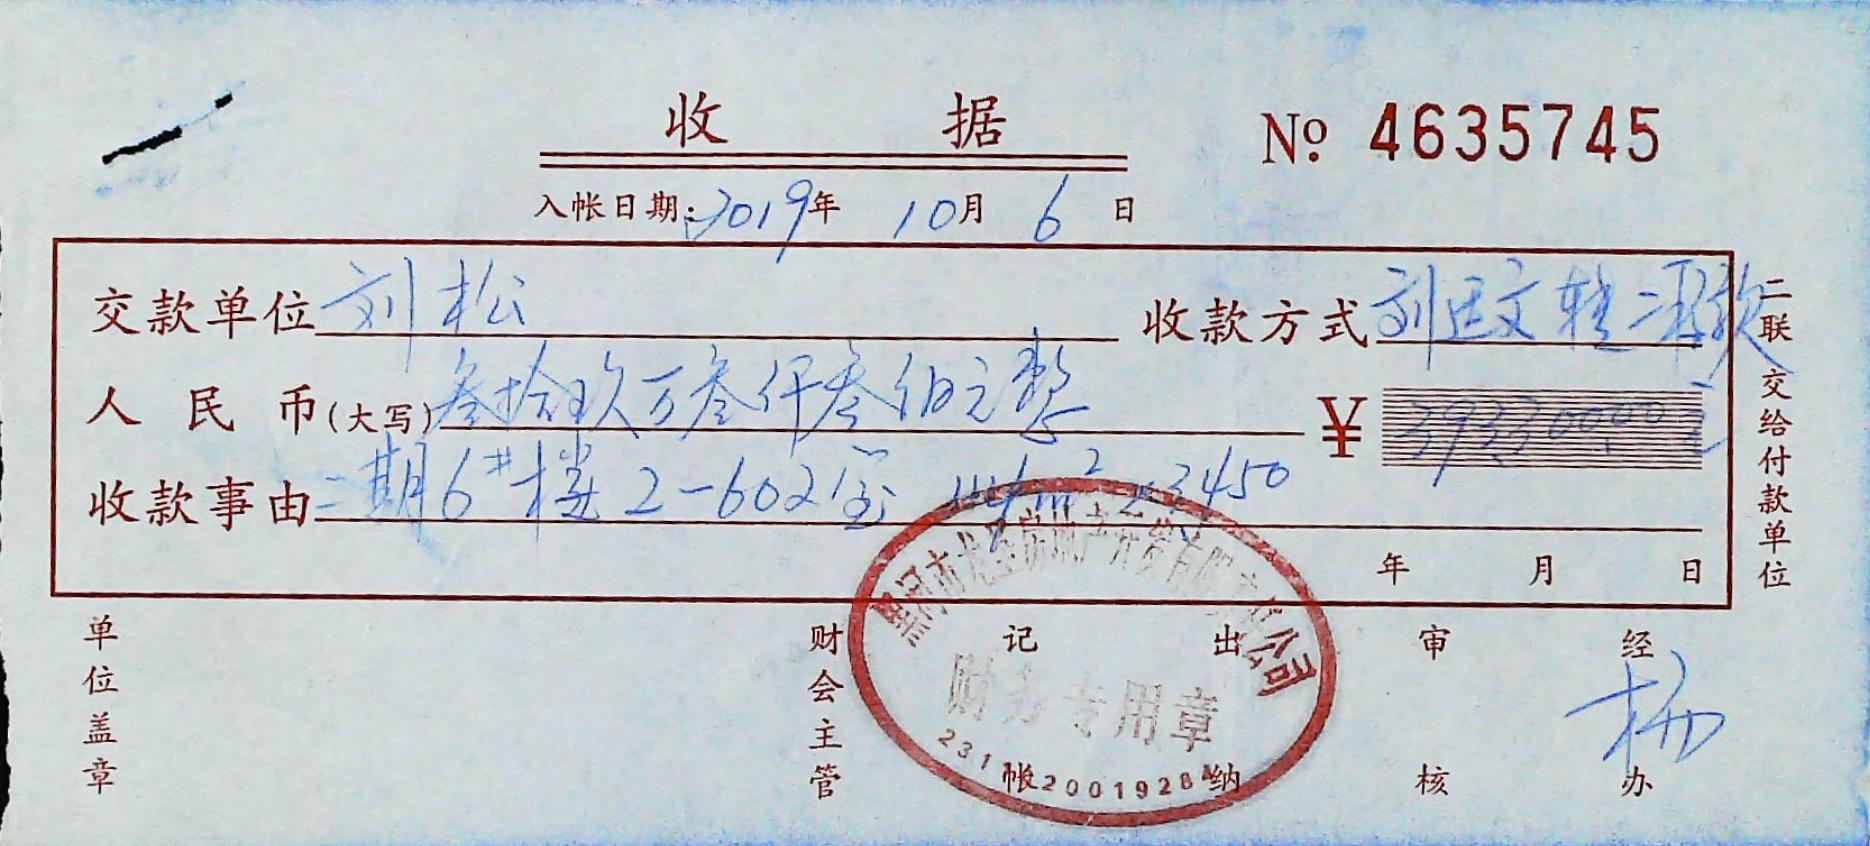 收 据
№ 4635745
入帐日期：2019年 10月 6 日
交款单位 刘松 收款方式 刘 文 转
人民币(大写) 叁拾玖万叁仟叁佰元整 ¥ 393300.00元
收款事由 二期6#楼2-602室 114m² 3450
年 月 日
二联交给付款单位
单位盖章 财会主管 记帐 出纳 审核 经办
杨
黑河市龙 房地产开发有限 公司
财务专用章